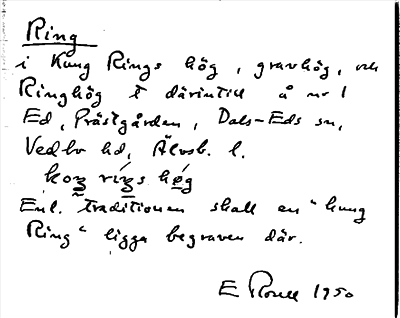 Ring
i Kung Rings hög, gravhög, och
Ringhög t därintill å nr 1
Ed, Prästgården, Dals-Eds sn,
Vedbo hd, Älvsb. l.
koŋ riŋs hø̄g
Enl. traditionen skall en "kung
Ring" ligga begraven där.
E 1950